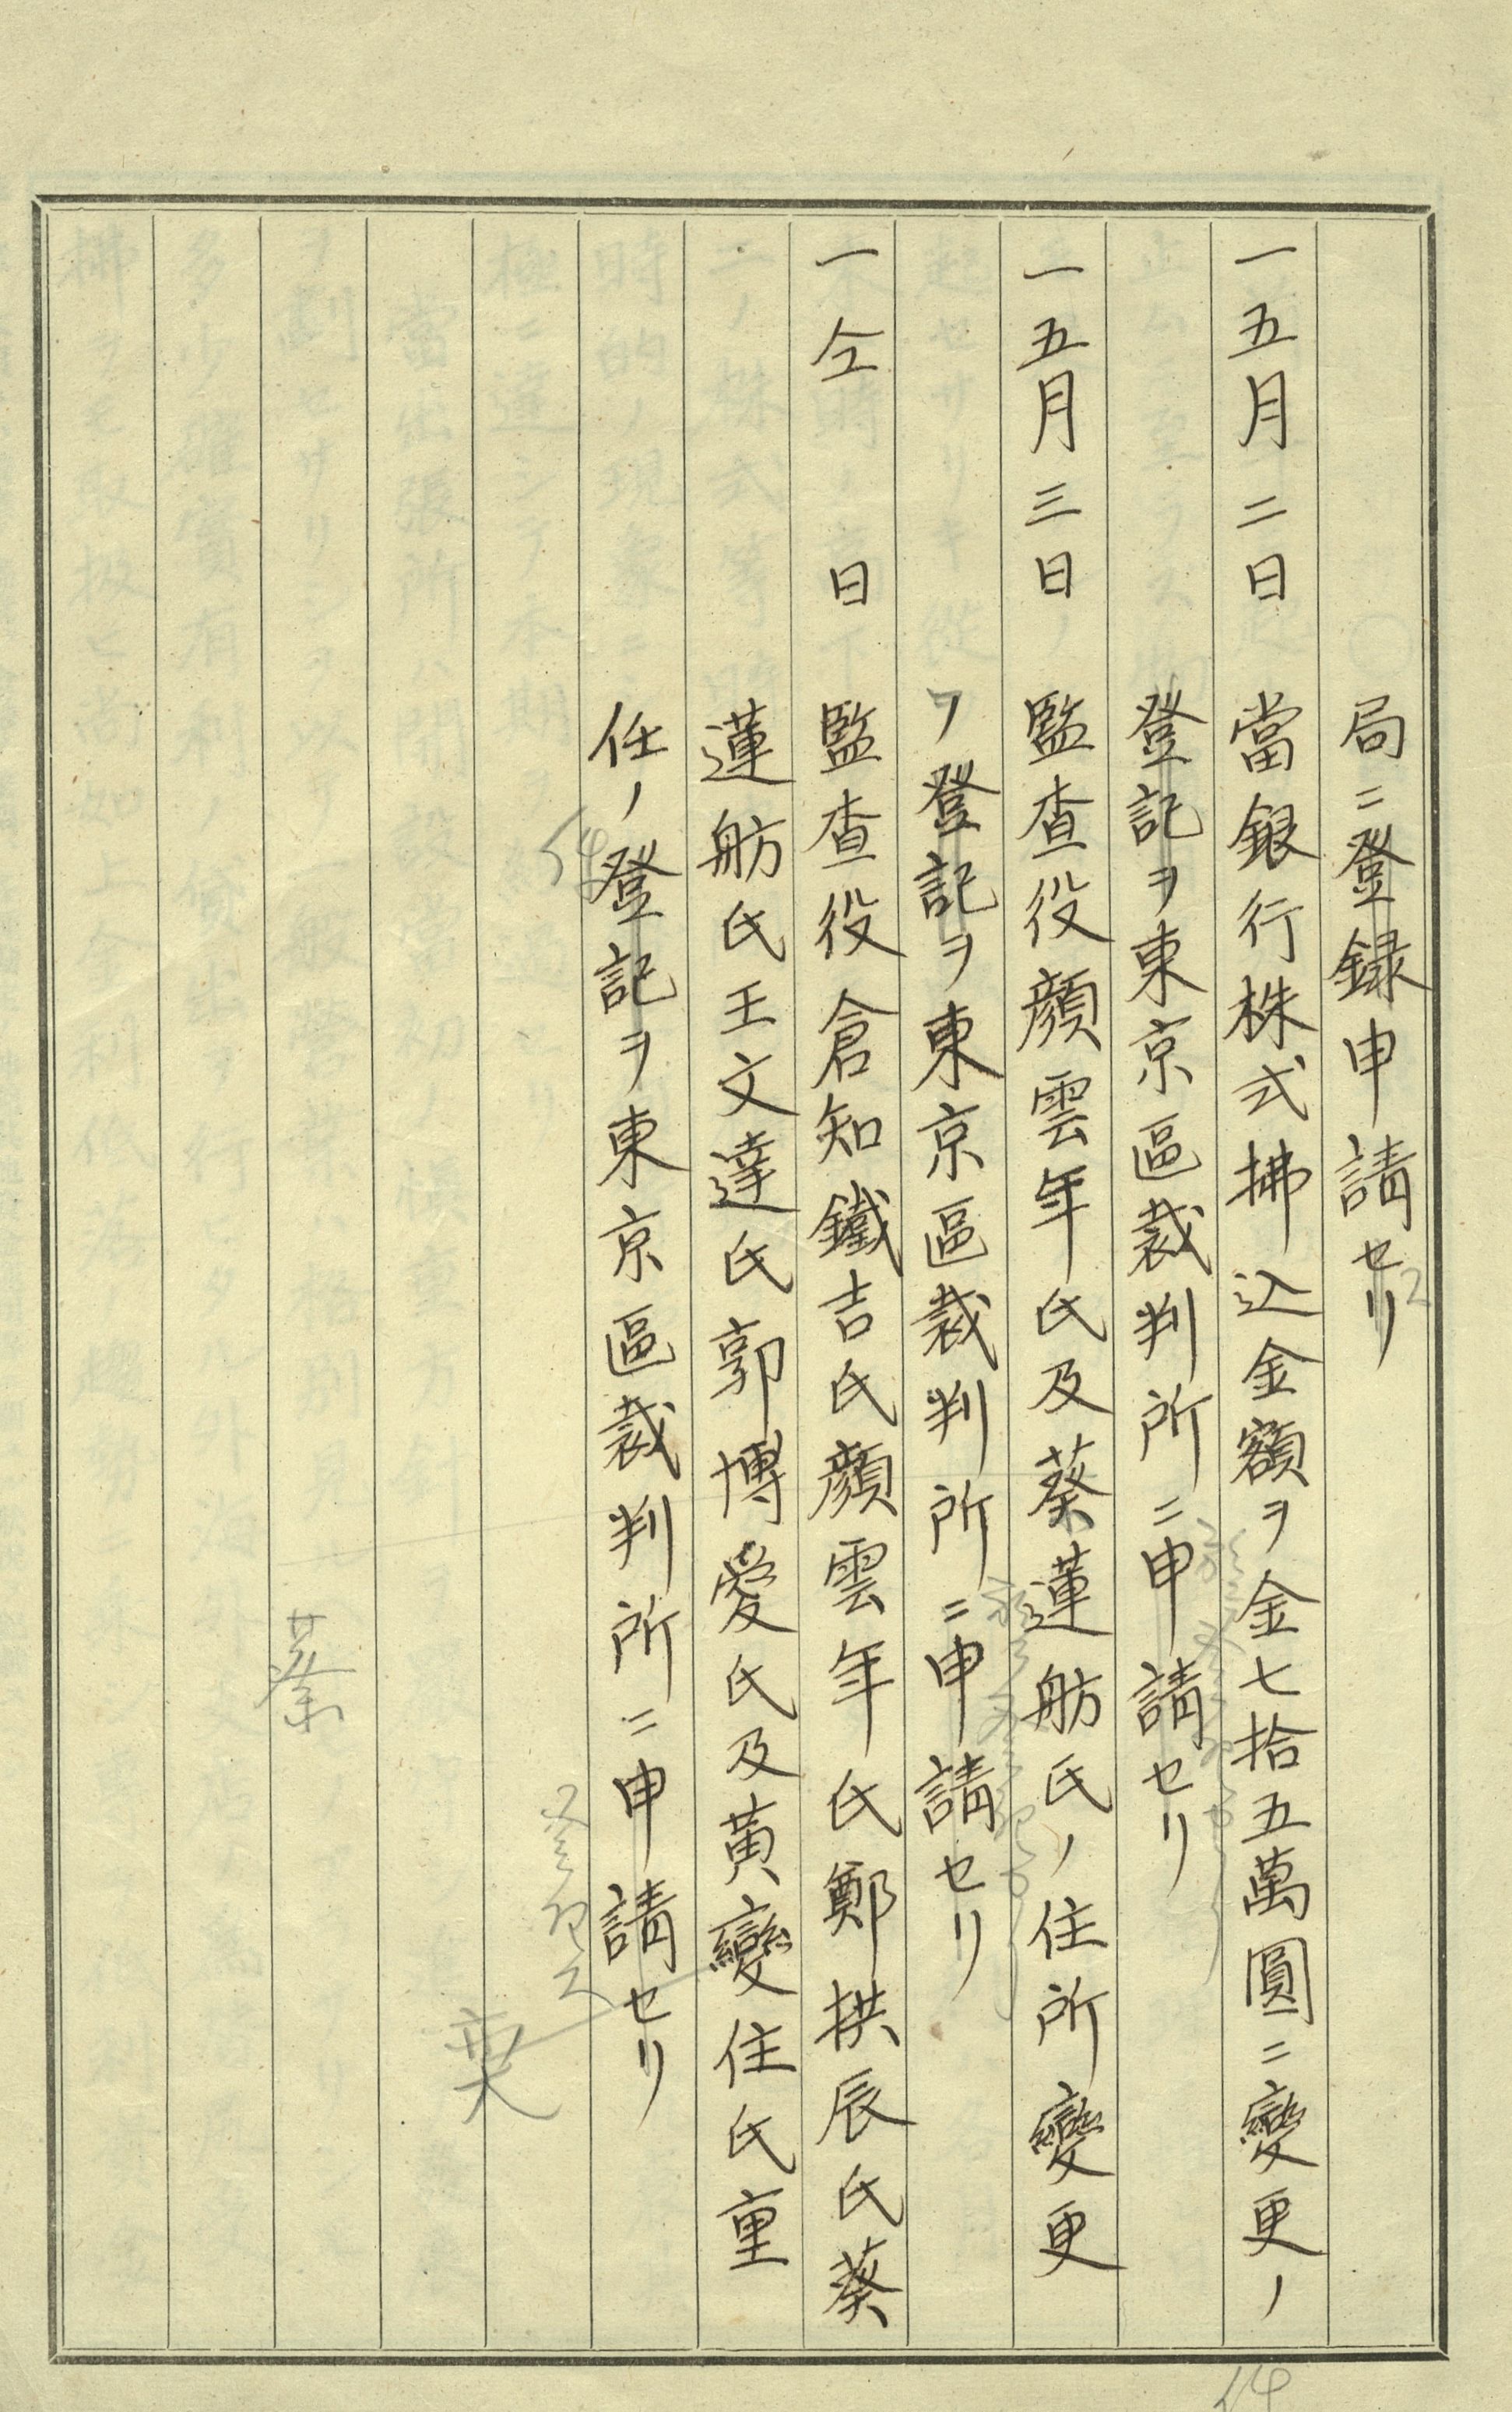 局ニ登録申請セリ
一五月二日 當銀行株式拂込金額ヲ金七拾五萬圓ニ變更ノ
登記ヲ東京區裁判所ニ申請セリ
一五月三日 監查役顏雲年氏及蔡蓮舫氏ノ住所變更
ノ登記ヲ東京區裁判所ニ申請セリ
一仝 日 監查役倉知鐵吉氏顏雲年氏鄭拱辰氏蔡
蓮舫氏王文達氏郭博愛氏及黃變住氏重
任ノ登記ヲ東京區裁判所ニ申請セリ
蔡
14